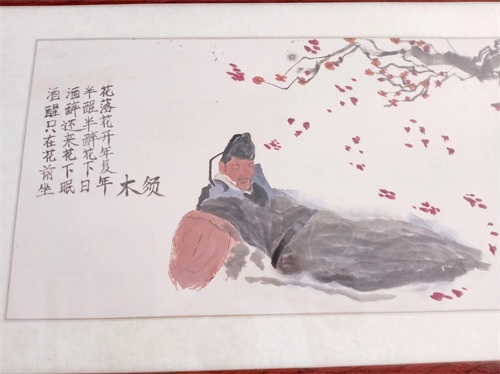 酒醒只在花前坐
酒醉还来花下眠
半醒半醉花下日
花落花开年复年
木须